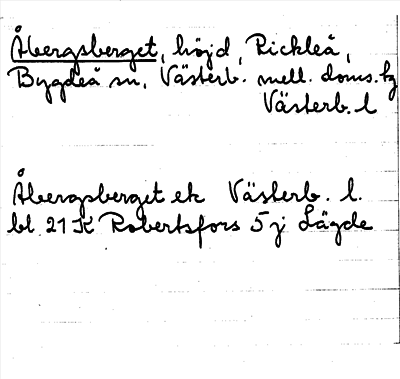 Åbergsberget, höjd, Rickleå,
Bygdeå sn, Västerb. mell. doms.tg
Västerb. l
Åbergsberget ek Västerb. l.
bl 21 K Robertsfors 5 j Lägde